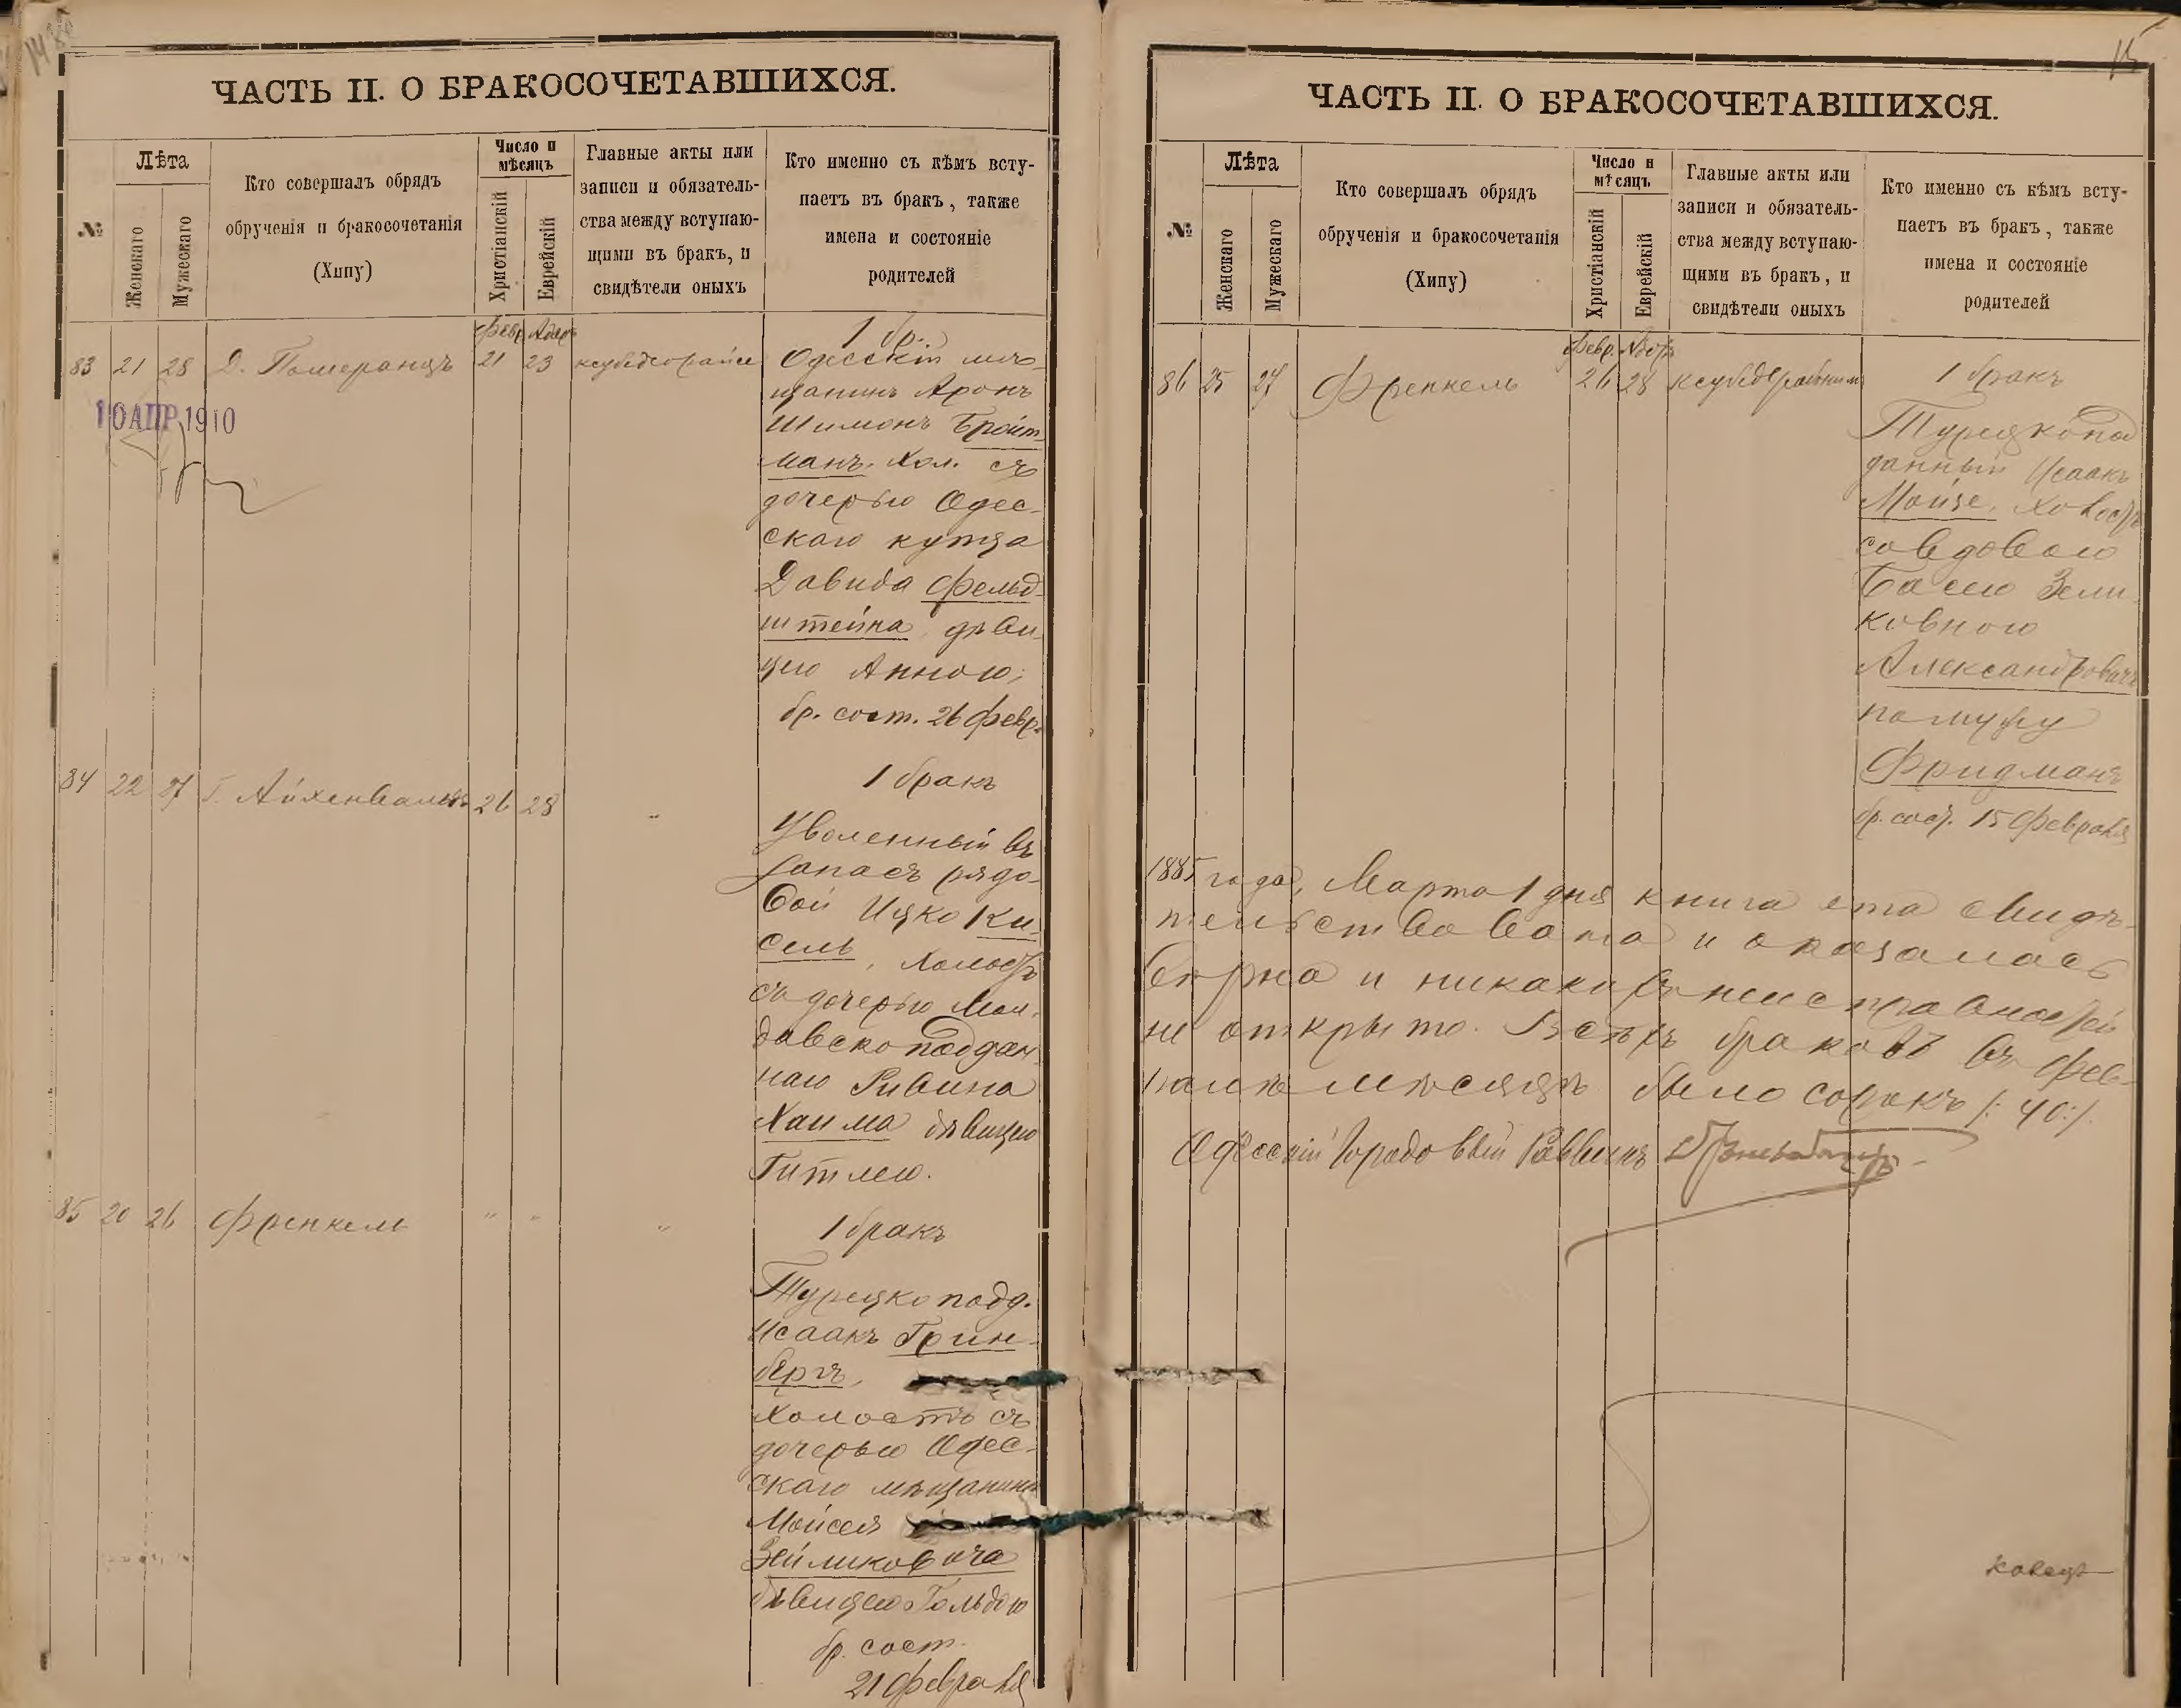 14
ЧАСТЬ II. О БРАКОСОЧЕТАВШИХСЯ.
№
Лѣта
Женскаго
Мужескаго
Кто совершалъ обрядъ
обрученія и бракосочетанія
(Хипу)
Число и
мѣсяцъ
Христіанскій
Еврейскій
Главные акты или
записи и обязатель-
ства между вступаю-
щими въ бракъ, и
свидѣтели оныхъ
Кто именно съ кѣмъ всту-
паетъ въ бракъ, также
имена и состояніе
родителей
83 21 28 Д. Померанцъ
Февр. Адаръ
21 23
1 бр.
Одесскій мѣ-
щанинъ Аронъ
Шимонъ Бройт-
манъ. Хол. съ
дочерью Одес-
скаго купца
Давида Фельд-
штейна, дѣви-
цею Анною;
бр. сост. 26 февр.
10 АПР 1910
84 22 27 Г. Айхенвальдъ 26 28 "
1 бракъ
Уволенный въ
запасъ рядо-
вой Ицко Ки-
сель, холостъ
съ дочерью Мол-
давскоподдан-
наго Рувина
Хаима дѣвицею
Гитлею.
85 20 26 Френкель " " "
1 бракъ
Турецкоподд.
Исаакъ Грин-
бергъ,
холостъ съ
дочерью Одес-
скаго мѣщанина
Мойсея
Зейликовича
дѣвицею Гольдою
бр. сост.
21 февраля
15
ЧАСТЬ II. О БРАКОСОЧЕТАВШИХСЯ.
№
Лѣта
Женскаго
Мужескаго
Кто совершалъ обрядъ
обрученія и бракосочетанія
(Хипу)
Число и
мѣсяцъ
Христіанскій
Еврейскій
Главные акты или
записи и обязатель-
ства между вступаю-
щими въ бракъ, и
свидѣтели оныхъ
Кто именно съ кѣмъ всту-
паетъ въ бракъ, также
имена и состояніе
родителей
86 25 27 Френкель
Февр. Адаръ
26 28
1 бракъ
Турецкопод
данный Исаакъ
Мойзе, холостъ
со вдовою
Басею Зели
ковною
Александровичъ
по мужу
Фридманъ
бр. сост. 15 февраля
1885 года, Марта 1 дня книга эта свидѣ-
тельствована и оказалась
вѣрна и никакихъ неисправностей
не открыто. Всѣхъ браковъ въ фев-
ралѣ мѣсяцѣ было сорокъ /: 40:/.
Одесскій Городовый Раввинъ